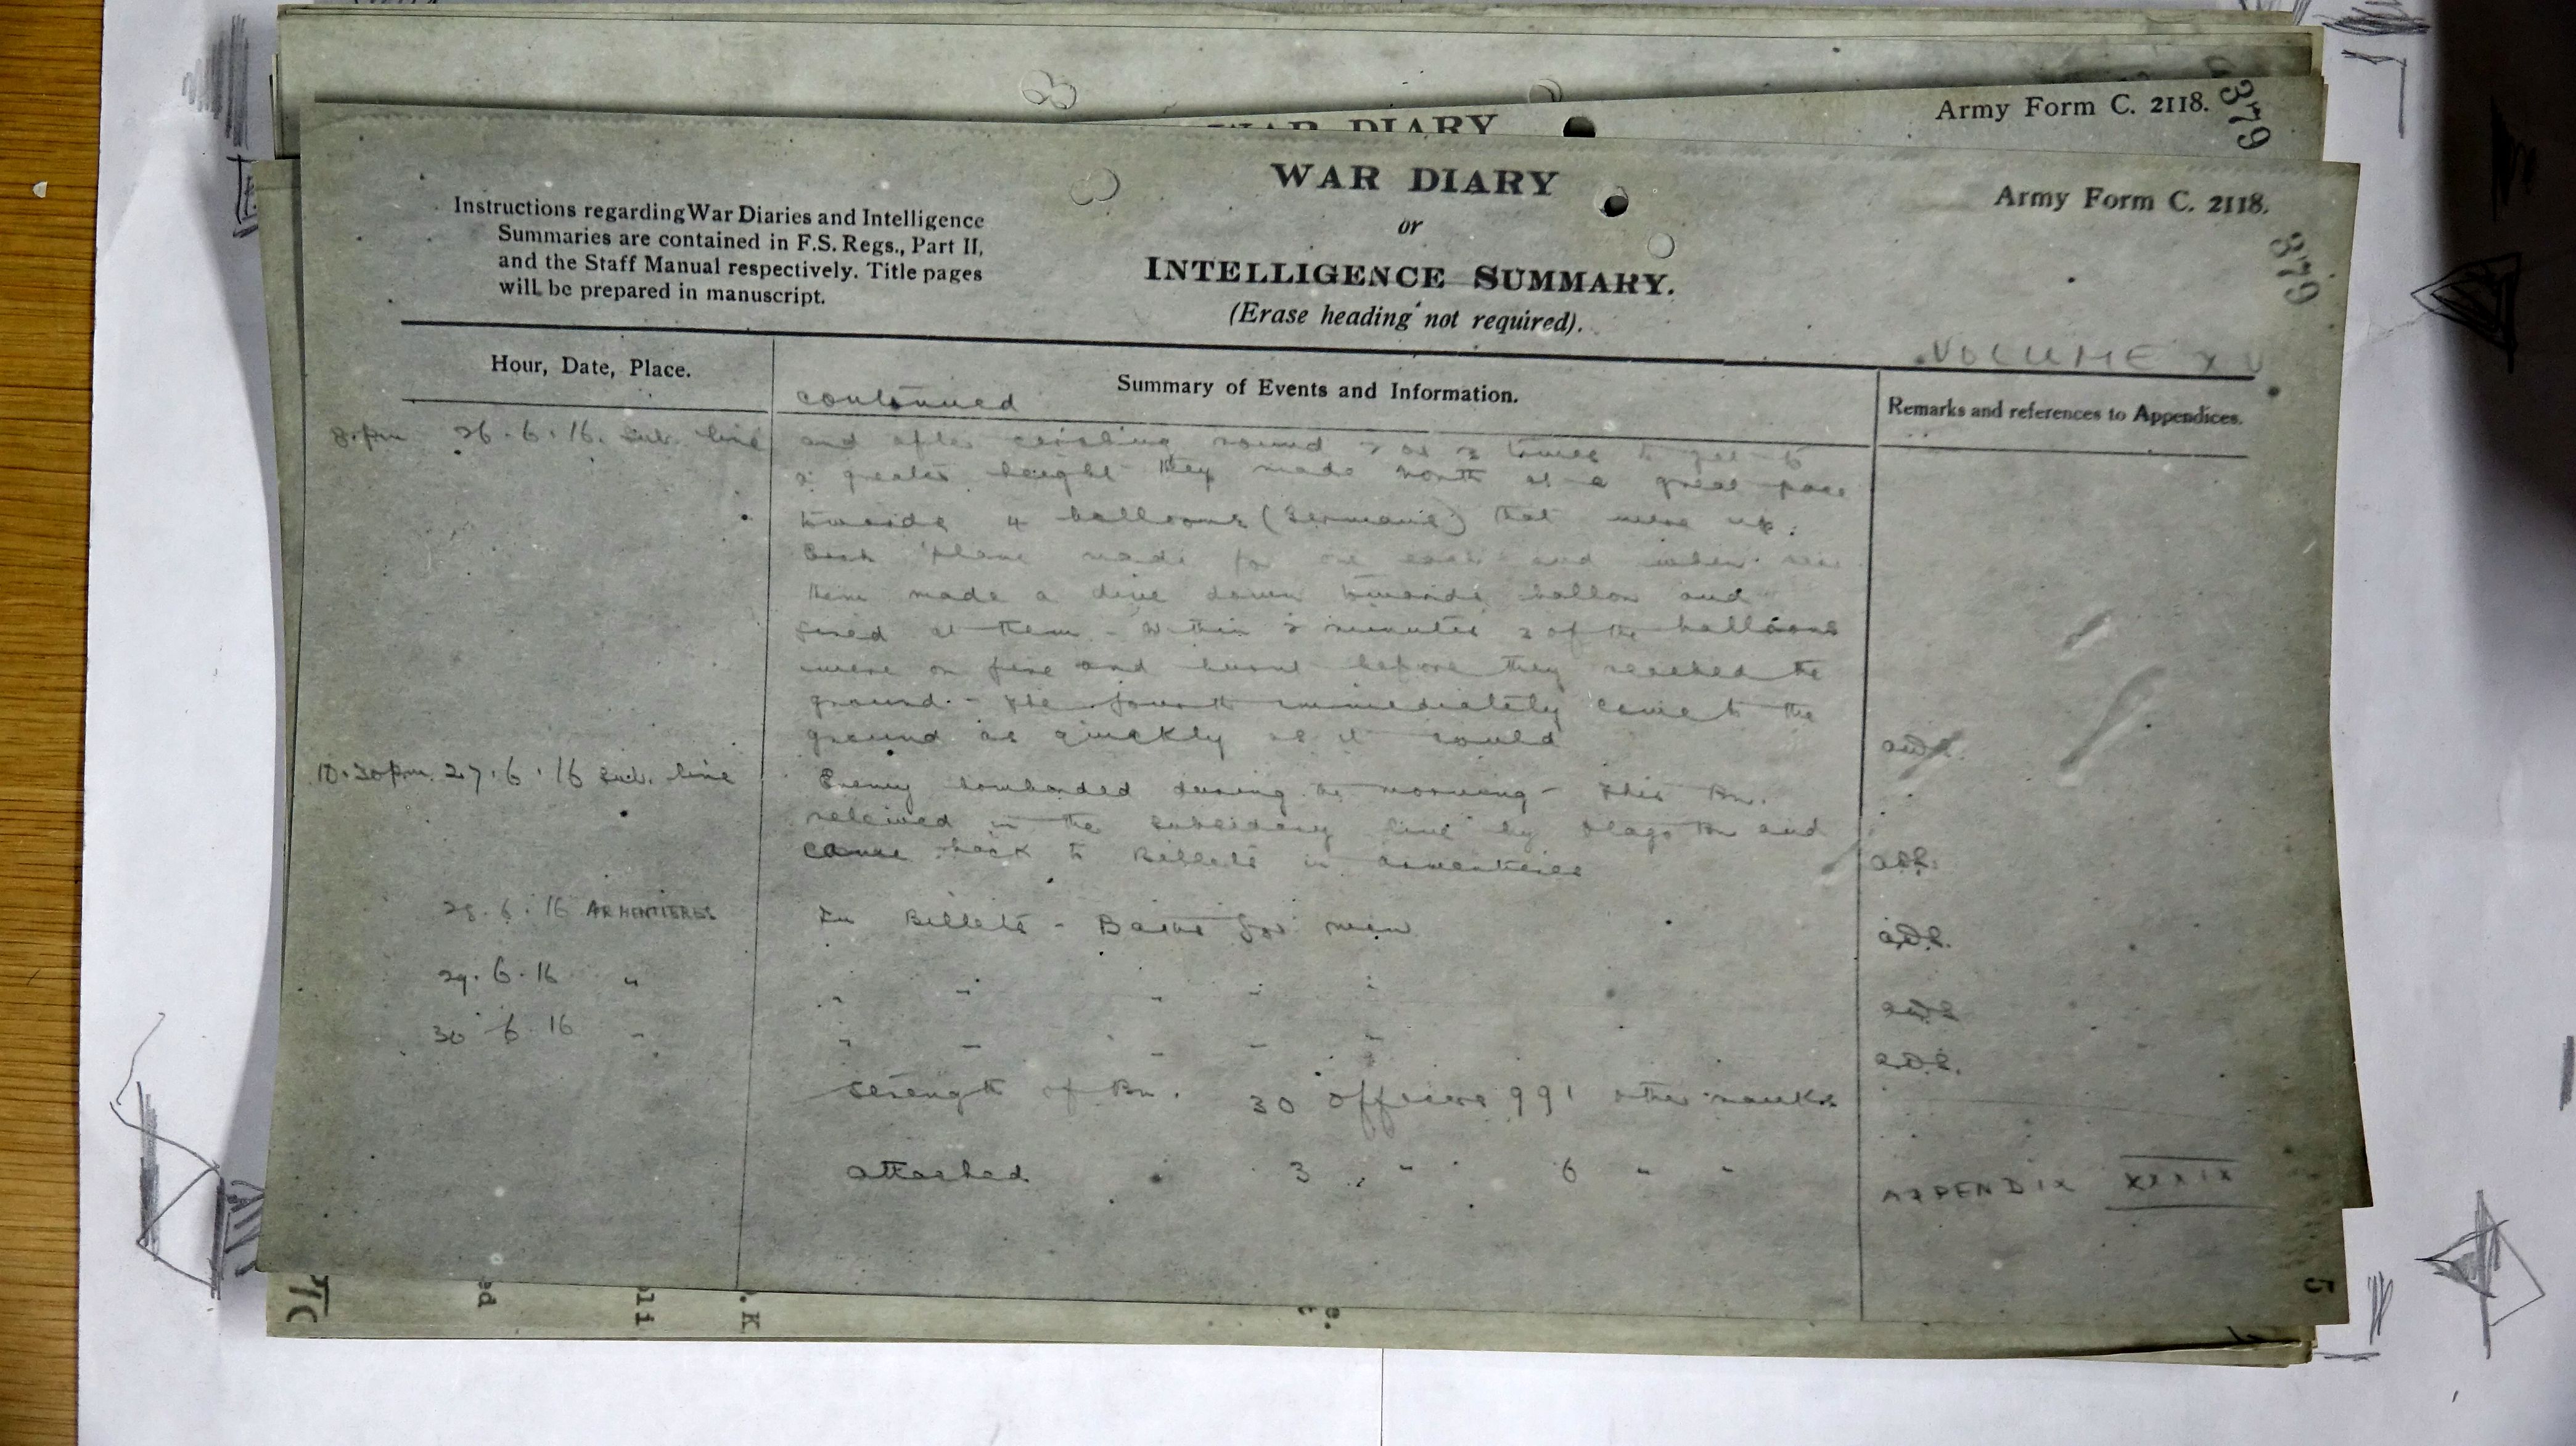 WAR DIARY
Army Form C. 2118.
379
Instructions regarding War Diaries and Intelligence
Summaries are contained in F.S. Regs., Part II,
and the Staff Manual respectively. Title pages
will be prepared in manuscript.
WAR DIARY
or
INTELLIGENCE SUMMARY.
(Erase heading not required).
Army Form C. 2118.
379
VOLUME XV
Hour, Date, Place.
Summary of Events and Information.
Remarks and references to Appendices.
continued
8.pm 26.6.16. Sub. line
and after circling round 2 or 3 times to get to
a greater height they made north at a great pace
towards 4 balloons (Germans) that were up.
Each plane made for one each and when
them made a dive down towards ballon and
fired at them - Within 2 minutes 3 of the balloons
were on fire and burnt before they reached the
ground. - The fourth immediately came to the
ground as quickly as it could
10.30pm. 27.6.16 Sub. line
Enemy bombarded during the morning - This Bn.
relieved in the subsidiary line by Otago Bn and
came back to Billets in Armentieres
28.6.16 ARMENTIERES
In Billets - Baths for men
29.6.16 "
" " " " "
30 6 16 "
" " " " "
Strength of Bn. 30 officers 991 other ranks
attached 3 " 6 " "
APPENDIX XXXIX